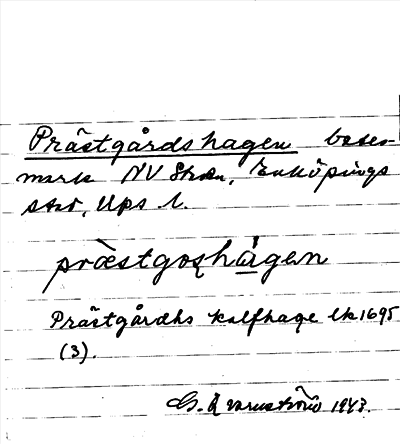 Prästgårdshagen betes-
mark NV Strön, Enköpings
stad, Ups l.
præ̀stgoʂhàgen
Prästgårdhs kalfhage lk 1695
(3).
G. Warnström 1943.